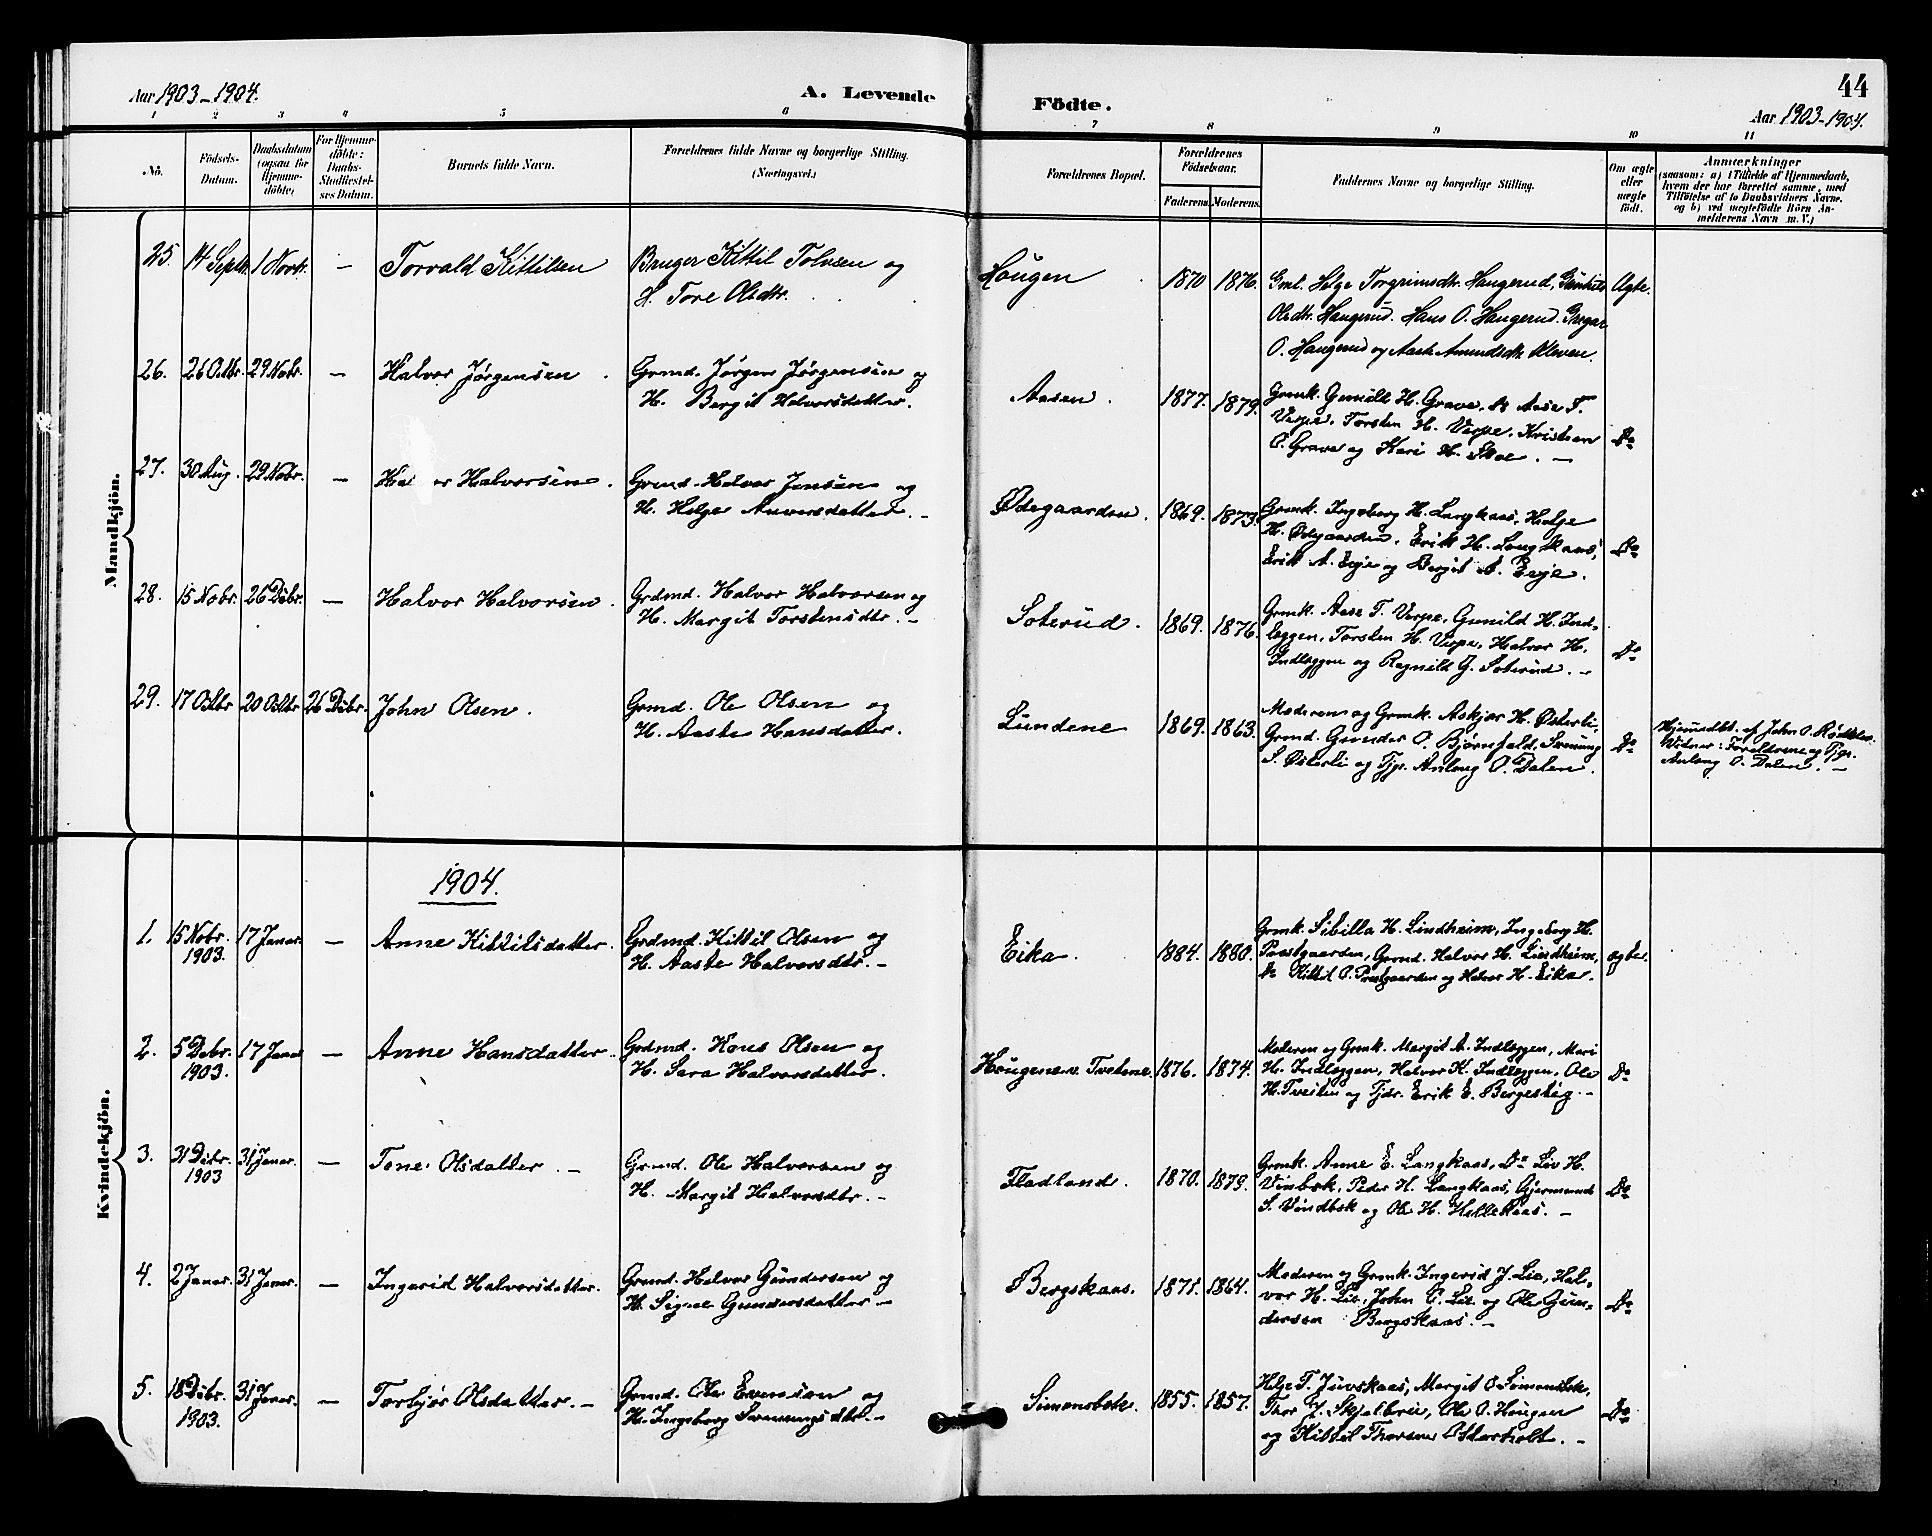 Aar 1903-1904.
A. Levende
Födte.
44
Aar 1903-1904.
1 2 3 4 5 6 7 8 9 10 11
No.
Födsels-
Datum.
Daabsdatum
(ogsaa for
Hjemme-
döbte;
For Hjemme-
döbte:
Daabs-
Stadfæstel-
ses Datum.
Barnets fulde Navn.
Forældrenes fulde Navne og borgerlige Stilling.
(Næringsvei.)
Forældrenes Bopæl.
Forældrenes
Födselsaar.
Faderens. Moderens.
Faddernes Navne og borgerlige Stilling.
Om ægte
eller
uægte
födt.
Anmærkninger
(saasom: a) i Tilfælde af Hjemmedaab,
hvem der har forrettet samme, med
Tilföielse af to Daabsvidners Navne,
og b) ved uægtefödte Börn An-
melderens Navn m. V.)
Mandkjön.
25. 14 Septr. 1 Novbr. — Torvald Kittilsen
Bruger Kittil Tolvsen og
H. Tore Olsdtr.
Haugen 1870 1876.
Gml. Helge Torgrimsdtr. Haugerud,
Olsdtr. Haugerud. Hans O. Haugerud. Gregar
O. Haugerud og Aaste Amundsdtr. Kleven.
Ægte.
26. 26 Octbr. 29 Nobr. — Halvor Jørgensen.
Grmd. Jørgen Jørgensen og
H. Bergit Halvorsdatter.
Aasen. 1877. 1879.
Grmk. Gunild H. Grave, Aase T.
Verpe, Torsten H. Verpe, Kristian
O. Grave og Kari H. Moe. —
Do
27. 30 Aug. 29 Nobr. — Halvor Halvorsen.
Grmd. Halvor Jensen og
H. Helge Auversdatter. —
Ødegaarden. 1869. 1873.
Grmk. Ingeborg H. Langkaas, Helge
H. Ødegaarden, Erik H. Langkaas,
Erik A. Eeje og Bergit A. Eeje.
Do
28. 15 Nobr. 26 Dcbr. — Halvor Halvorsen.
Grdmd. Halvor Halvorsen og
H. Margit Torstensdtr. —
Soterud. 1869. 1876.
Grmk. Aase T. Verpe, Gunild H. Ind-
leggen, Torsten H. Verpe, Halvor H.
Indleggen og Ragnild G. Soterud. —
Do
29. 17 Octbr. 20 Octbr. 26 Dcbr. John Olsen.
Grmd. Ole Olsen og
H. Aaste Hansdatter.
Lundene 1869. 1863.
Moderen og Grmk. Askjær H. Østerli,
Grmd. Gunder O. Bjørnfald, Svenung
S. Østerli og Pjge. Anlaug O. Dalen.
Do
Hjemmedbt. af John O.
Vidner: Forældrene og Pjge.
Anlaug O. Dalen. —
1904.
Kvindekjön.
1. 15 Nobr. 17 Janr. — Anne Kittilsdatter.
1903.
Grdmd. Kittil Olsen og
H. Aaste Halvorsdtr. —
Eika. 1884. 1880.
Grmk. Sibilla H. Lindheim, Ingeborg H.
Præstgaarden, Grmd. Halvor H. Lindheim,
Do Kittil O. Præstgaarden og Halvor H. Eika.
ægte.
2. 5 Debr. 17 Janr — Anne Hansdatter.
1903.
Grdmd. Hans Olsen og
H. Sara Halvorsdatter.
Haugene u. Tvetene. 1876. 1874.
Moderen og Grmk. Margit A. Indleggen, Mari
H. Indleggen, Halvor K. Indleggen, Ole
H. Tveiten og Pjdr. Erik E. Bergestig. —
Do
3. 31 Dcbr. 31 Janr. — Tone Olsdatter. —
1903
Grmd. Ole Halvorsen og
H. Margit Halvorsdtr. —
Fladland. 1870. 1879.
Grmk. Anne E. Langkaas, Do Liv H.
Vinbæk, Peder H. Langkaas, Gjermund
S. Vindbæk og Ole H. Hellekaas. —
Do
4. 2 Janr. 31 Janr. — Ingerid Halvorsdatter.
Grmd. Halvor Gundersen og
H. Signe Gundersdatter —
Bergskaas. 1871. 1864.
Moderen og Grmk. Ingerid J. Lie, Hal-
vor H. Lie, John C. Lie og Ole Gun-
dersen Bergskaas. —
Do
5. 18 Dcbr. 31 Janr. — Torbjør Olsdatter. —
1903.
Grmd. Ole Evensen og
H. Ingeborg Svenungsdtr. —
Simonsbæk. 1855. 1857.
Helge T. Juvskaas, Margit O. Simonsbæk,
Thor J. Skjelbrei, Ole O. Haugen
og Kittil Thorsen Østerholt. —
Do